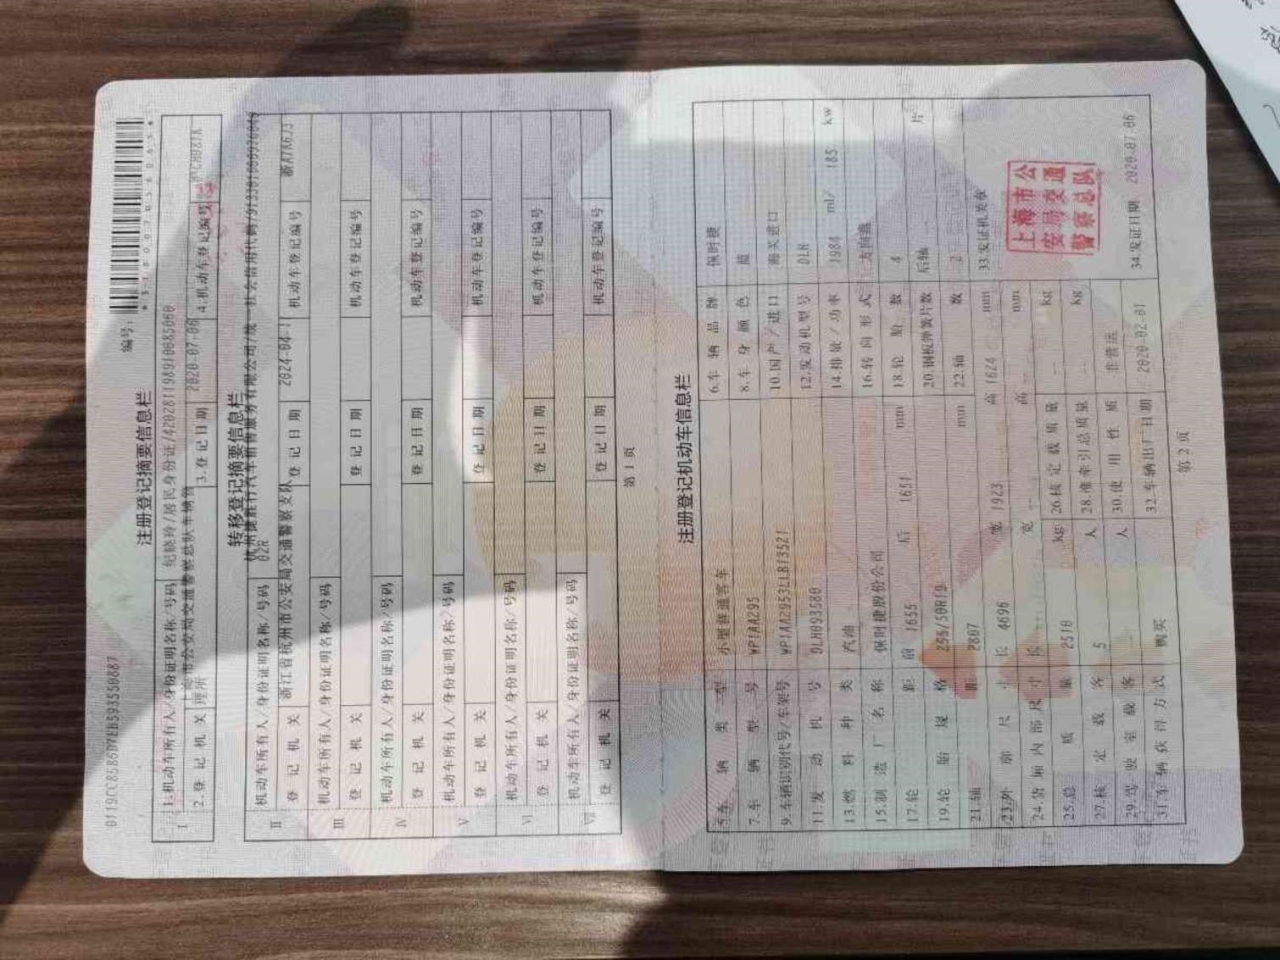 编号:
注册登记摘要信息栏
Ⅰ
1.机动车所有人/身份证明名称/号码 纪晓玲/居民身份证/420281198910085060
2.登记机关 上海市公安局交通警察总队车辆管理所 3.登记日期 2020-07-06 4.机动车登记编号
转移登记摘要信息栏
Ⅱ
机动车所有人/身份证明名称/号码 杭州捷胜行汽车租赁服务有限公司/统一社会信用代码
02R
登记机关 浙江省杭州市公安局交通警察支队 登记日期 2024-04-1 机动车登记编号
Ⅲ
机动车所有人/身份证明名称/号码
登记机关 登记日期 机动车登记编号
Ⅳ
机动车所有人/身份证明名称/号码
登记机关 登记日期 机动车登记编号
Ⅴ
机动车所有人/身份证明名称/号码
登记机关 登记日期 机动车登记编号
Ⅵ
机动车所有人/身份证明名称/号码
登记机关 登记日期 机动车登记编号
Ⅶ
机动车所有人/身份证明名称/号码
登记机关 登记日期 机动车登记编号
第1页
注册登记机动车信息栏
5.车辆类型 小型普通客车 6.车辆品牌 保时捷
7.车辆型号 WP1AA295 8.车身颜色 蓝
9.车辆识别代号/车架号 WP1AA2953LLB13521 10.国产/进口 海关进口
11.发动机号 DLH093580 12.发动机型号 DLH
13.燃料种类 汽油 14.排量/功率 1984 ml/ 185 kw
15.制造厂名称 保时捷股份公司 16.转向形式 方向盘
17.轮距 前 1655 后 1651 mm 18.轮胎数 4
19.轮胎规格 20.钢板弹簧片数 后轴 片
21.轴距 2807 mm 22.轴数 2
23.外廓尺寸 长 4696 宽 1923 高 1624 mm
33.发证机关章
上海市公
安局交通
警察总队
24.货厢内部尺寸 长 宽 高 mm
25.总质量 2510 kg 26.核定载质量 kg
27.核定载客 5 人 28.准牵引总质量 kg
29.驾驶室载客 人 30.使用性质 非营运
31.车辆获得方式 购买 32.车辆出厂日期 2020-02-01 34.发证日期 2020-07-06
第2页